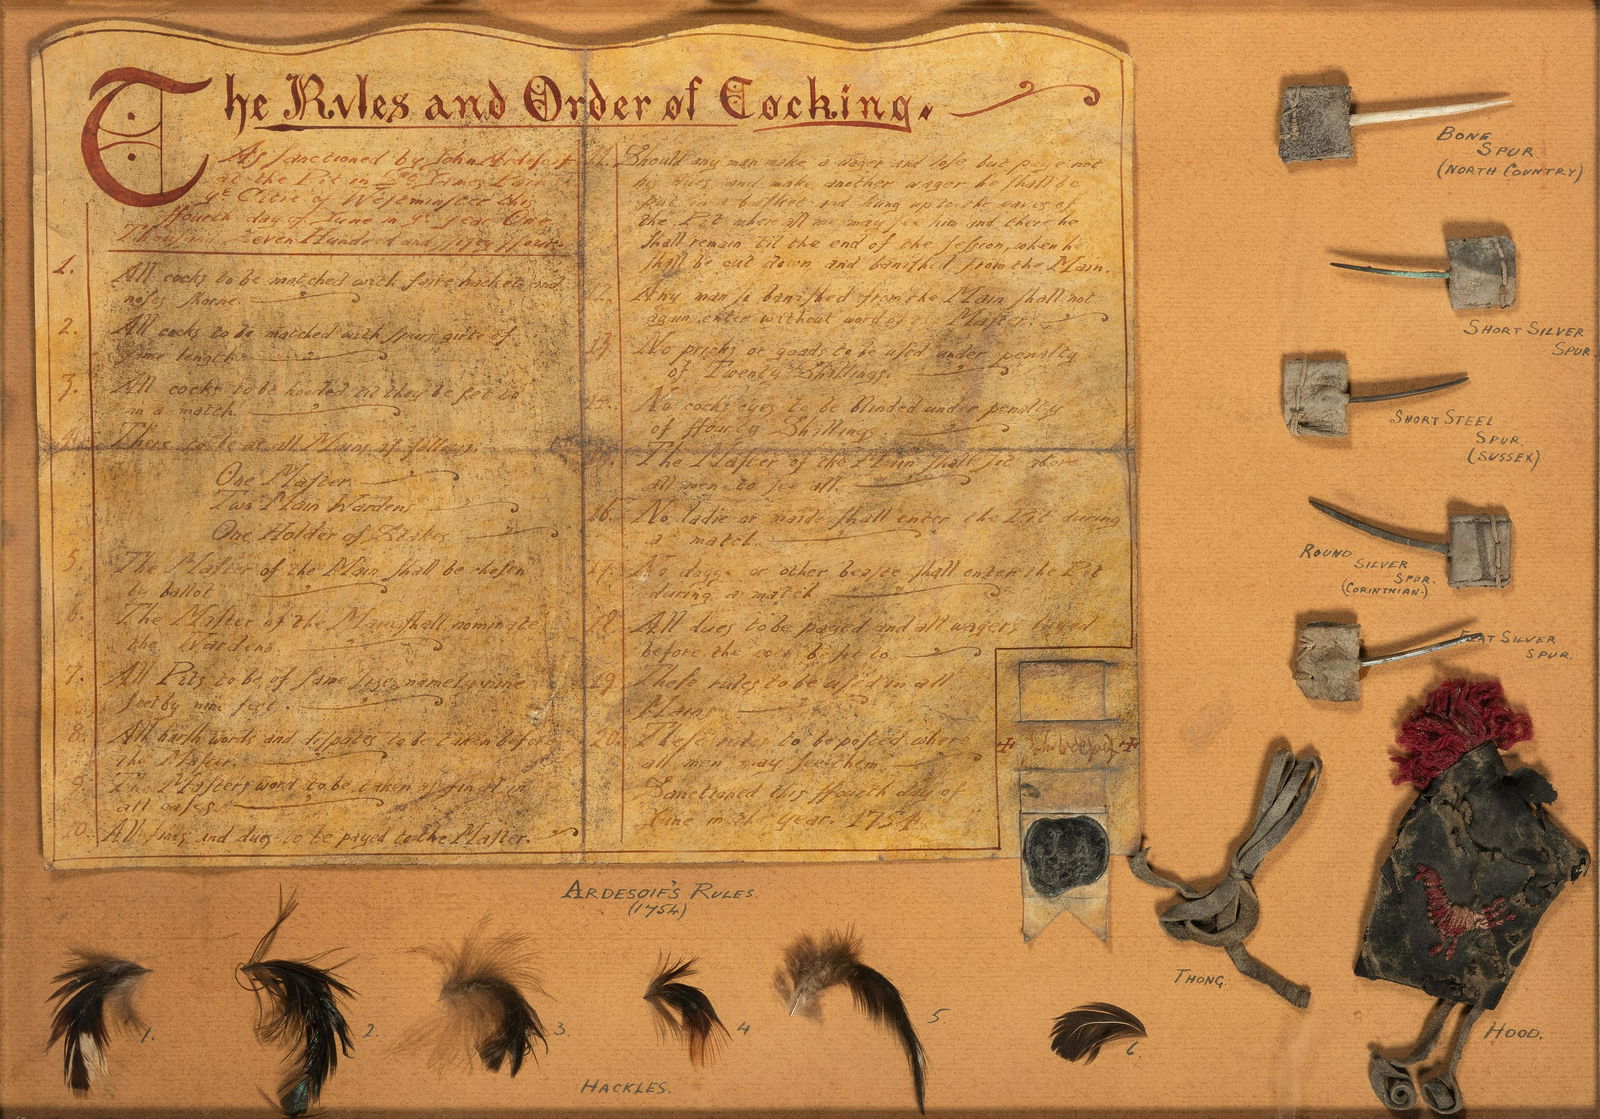 The Rules and Order of Cocking.
As sanctioned by John Ardesoif
at the Pit in St James Lain
yᵉ Citie of Westminster this
ffourth day of June in yᵉ year One
Thousan Seven Hundred and ffifty ffour.
1. All cocks to be matched with faire hackels and
nofes shorne.
2. All cocks to be matched with spurs girte of
same length
3. All cocks to be hooded til they be set to
in a match.
4. There to be at all Mains as follows.
One Mafter.
Two Main Wardens
One Holder of Stakes
5. The Mafter of the Main shall be chosen
by ballot
6. The Mafter of the Main shall nominate
the Wardens.
7. All Pits to be of same size, namely nine
feet by nine feet.
8. All harsh words and disputes to be taken before
the Mafter.
9. The Mafters word to be taken as final in
all cases.
10. All fines and dues to be payed to the Mafter.
11. Should any man make a wager and lose but paye not
his dues and make another wager he shall be
put in a basket and hung up to the eaves of
the Pit where all me may see him and there he
shall remain til the end of the session, when he
shall be cut down and banished from the Main.
12. Any man so banished from the Main shall not
again enter without word of the Mafter.
13. No pricks or goads to be used under penalty
of Twenty Shillings.
14. No cocks eyes to be blinded under penalty
of ffourty Shillings
15. The Mafter of the Main shall sit above
all men to see all.
16. No ladie or maide shall enter the Pit during
a match.
17. No dogge or other beaste shall enter the Pit
during a match
18. All dues to be payed and all wagers
before the cocks be set to.
19. These rules to be used in all
Mains.
20. These rules to be posted where
all men may see them.
Sanctioned this ffourth day of
June in the year. 1754.
J A
ARDESOIF'S RULES.
(1754)
BONE
SPUR.
(NORTH COUNTRY)
SHORT SILVER
SPUR.
SHORT STEEL
SPUR.
(SUSSEX)
ROUND
SILVER
SPUR.
(CORINTHIAN.)
FLAT SILVER
SPUR.
THONG.
HOOD.
1.
2.
3.
4
5.
6.
HACKLES.